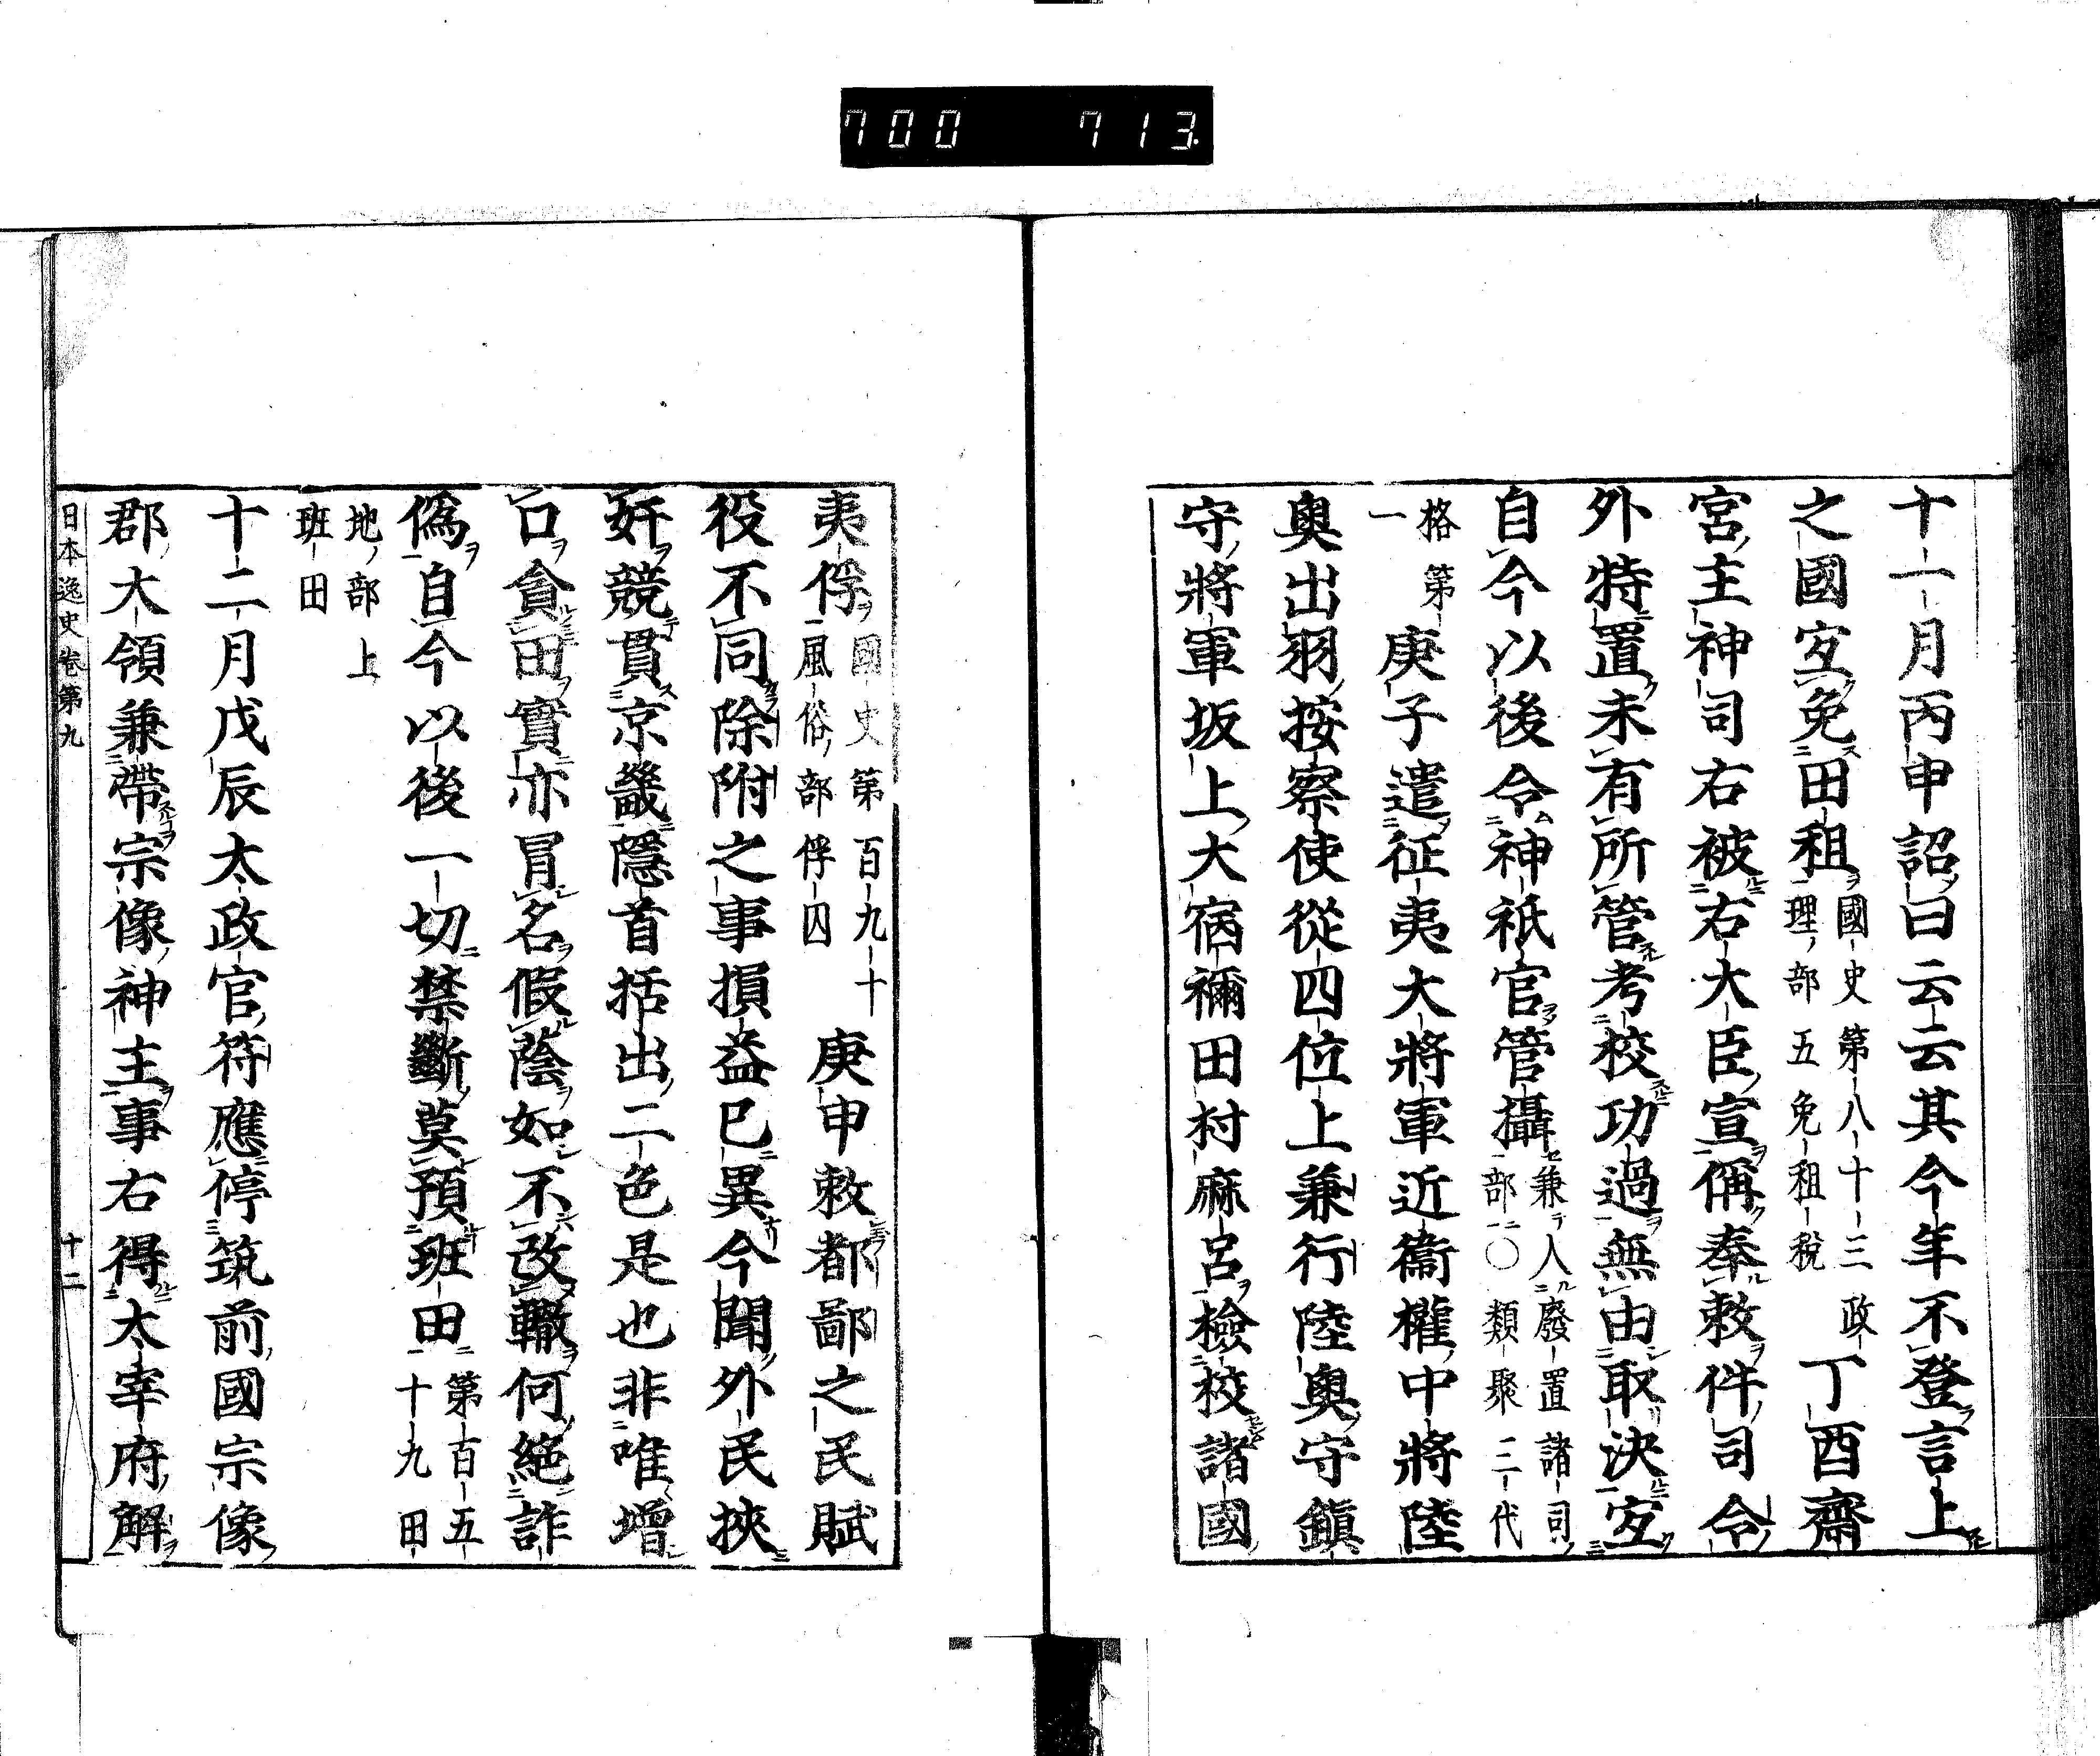 700 713
十一月丙申詔曰云云其今年不登言上
之國宐免田租國史第八十三政理部五免租税丁酉齋
宮主神司右被右大臣宣偁奉敕件司令
外特置未有所管考校功過無由取決宐
自今以後令神祇官管攝兼人廢置諸司部二〇類聚三代
格第一庚子遣征夷大將軍近衞權中將陸
奥出羽按察使從四位上兼行陸奥守鎭
守將軍坂上大宿禰田村麻呂檢校諸國
夷俘國史第百九十風俗部俘囚庚申敕都鄙之民賦
役不同除附之事損益已異今聞外民挾
奸競貫京畿隱首括出二色是也非唯增
口貪田實亦冒名假蔭如不改轍何絶詐
僞自今以後一切禁斷莫預班田第百五十九田
地部上班田
十二月戊辰太政官符應停筑前國宗像
郡大領兼帶宗像神主事右得太宰府解
日本逸史卷第九 十二